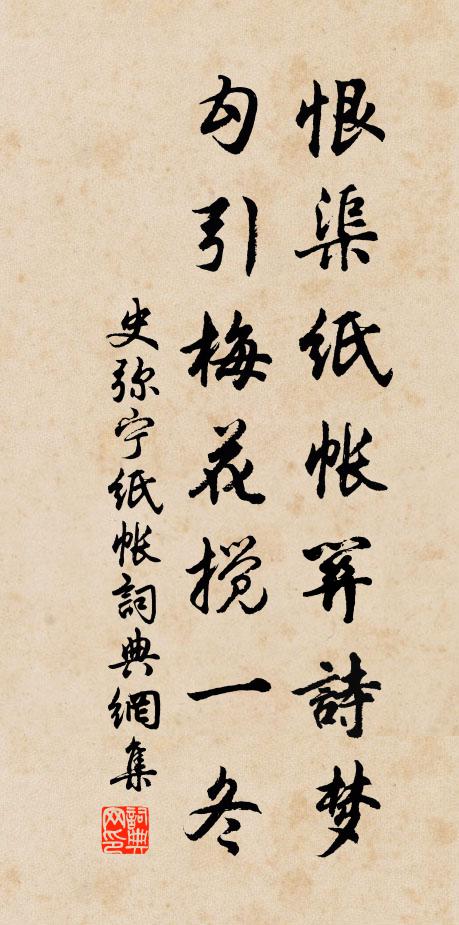 恨渠纸帐詩梦
勾引梅花搅一冬
史弥宁纸帐詞典網集
詞典网印